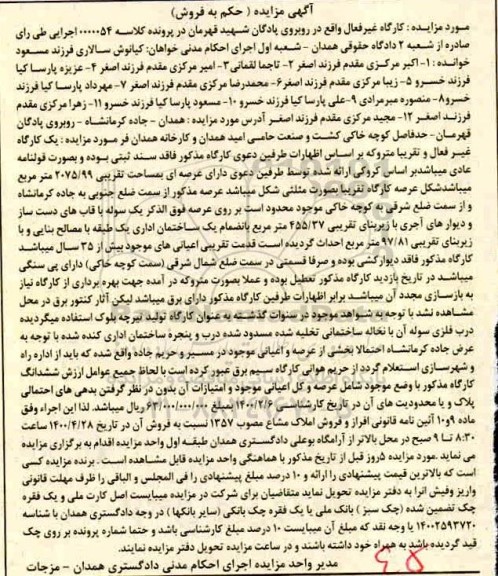 آگهی مزایده ( حکم به فروش)
مورد مزایده : کارگاه غیرفعال واقع در روبروی پادگان شهید قهرمان در پرونده کلاسه ۰۰۰۰۰۵۴ اجرایی طی رای
صادره از شعبه ۲ دادگاه حقوقی همدان - شعبه اول اجرای احکام مدنی خواهان: کیانوش سالاری فرزند مسعود
خوانده : ۱- اکبر مرکزی مقدم فرزند اصغر ۲- تاجما لقمانی ۳- امیر مرکزی مقدم فرزند اصغر ۴- عزیزه پارسا کیا
فرزند خسرو ۵- زیبا مرکزی مقدم فرزند اصغر ۶- محمدرضا مرکزی مقدم فرزند اصغر ۷- مهرداد پارسا کیا فرزند
خسرو ۸- منصوره میرمرادی ۹- علی پارسا کیا فرزند خسرو ۱۰- مسعود پارسا کیا فرزند خسرو ۱۱- زهرا مرکزی مقدم
فرزند اصغر ۱۲- مجید مرکزی مقدم فرزند اصغر آدرس مورد مزایده : همدان - جاده کرمانشاه - روبروی پادگان
قهرمان - حدفاصل کوچه خاکی کشت و صنعت حامی امید همدان و کارخانه همدان فر مورد مزایده : یک کارگاه
غیر فعال و تقریبا متروکه بر اساس اظهارات طرفین دعوی کارگاه مذکور فاقد سند ثبتی بوده و بصورت قولنامه
عادی میباشد بر اساس کروکی ارائه شده توسط طرفین دعوی دارای عرصه ای بمساحت تقریبی ۲۰۷۵/۹۹ متر مربع
میباشد شکل عرصه کارگاه تقریبا بصورت مثلثی شکل میباشد عرصه مذکور از سمت ضلع جنوبی به جاده کرمانشاه
و از سمت ضلع شرقی به کوچه خاکی موجود محدود است بر روی عرصه فوق الذکر یک سوله با قاب های دست ساز
و دیوار های آجری با زیربنای تقریبی ۴۵۵/۳۷ متر مربع بانضمام یک ساختمان اداری یک طبقه با مصالح بنایی و با
زیربنای تقریبی ۹۷/۸۱ متر مربع احداث گردیده است قدمت تقریبی اعیانی های موجود بیش از ۳۵ سال میباشد
کارگاه مذکور فاقد دیوارکشی بوده و صرفا قسمتی در سمت ضلع شمال شرقی (سمت کوچه خاکی) دارای پی سنگی
میباشد در تاریخ بازدید کارگاه مذکور تعطیل بوده و عملا بصورت متروکه در آمده جهت بهره برداری از کارگاه نیاز
به بازسازی مجدد آن میباشد برابر اظهارات طرفین کارگاه مذکور دارای برق میباشد لیکن آثار کنتور برق در محل
مشاهده نشد با توجه به شواهد موجود در سنوات گذشته به عنوان کارگاه تولید تیرچه بلوک استفاده میگردیده
درب فلزی سوله آن با نخاله ساختمانی تخلیه شده مسدود شده درب و پنجره ساختمان اداری کنده شده با توجه به
عرض جاده کرمانشاه احتمالا بخشی از عرصه و اعیانی موجود در مسیر و حریم جاده واقع شده که باید از اداره راه
و شهرسازی استعلام گردد از حریم هوائی کارگاه سیم برق عبور کرده است با لحاظ جمیع عوامل ارزش ششدانگ
کارگاه مذکور با وضع موجود شامل عرصه و کل اعیانی موجود و امتیازات آن بدون در نظر گرفتن بدهی های احتمالی
پلاک و یا محدودیت های آن در تاریخ کارشناسی ۱۴۰۰/۲/۶ مبلغ ۶۳/۰۰۰/۰۰۰/۰۰۰ ریال میباشد. لذا این اجراء وفق
ماده ۹و۱۰ آئین نامه قانونی افراز و فروش املاک مشاع مصوب ۱۳۵۷ نسبت به فروش آن در تاریخ ۱۴۰۰/۴/۲۸ ساعت
۸:۳۰ تا ۹ صبح در محل بالاتر از آرامگاه بوعلی دادگستری همدان طبقه اول واحد مزایده اقدام به برگزاری مزایده
می نماید .مورد مزایده ۵روز قبل از تاریخ مذکور با هماهنگی واحد مزایده قابل مشاهده است . برنده مزایده کسی
است که بالاترین قیمت پیشنهادی را ارائه و ۱۰ درصد مبلغ پیشنهادی را فی المجلس و الباقی را ظرف مهلت قانونی
واریز وفیش انرا به دفتر مزایده تحویل نماید متقاضیان برای شرکت در مزایده میبایست اصل کارت ملی و یک فقره
چک تضمین شده (چک سبز ) بانک ملی یا یک فقره چک بانکی (سایر بانکها ) در وجه دادگستری همدان با شناسه
۱۴۰۰۲۵۹۳۷۲۰ یا وجه نقد که مبلغ آن میبایست ۱۰ درصد مبلغ کارشناسی باشد و حتما شماره پرونده بر روی چک
قید گردیده باشد به همراه خود داشته باشند و در ساعت مزایده تحویل دفتر مزایده نمایند.
مدیر واحد مزایده اجرای احکام مدنی دادگستری همدان - مزجات